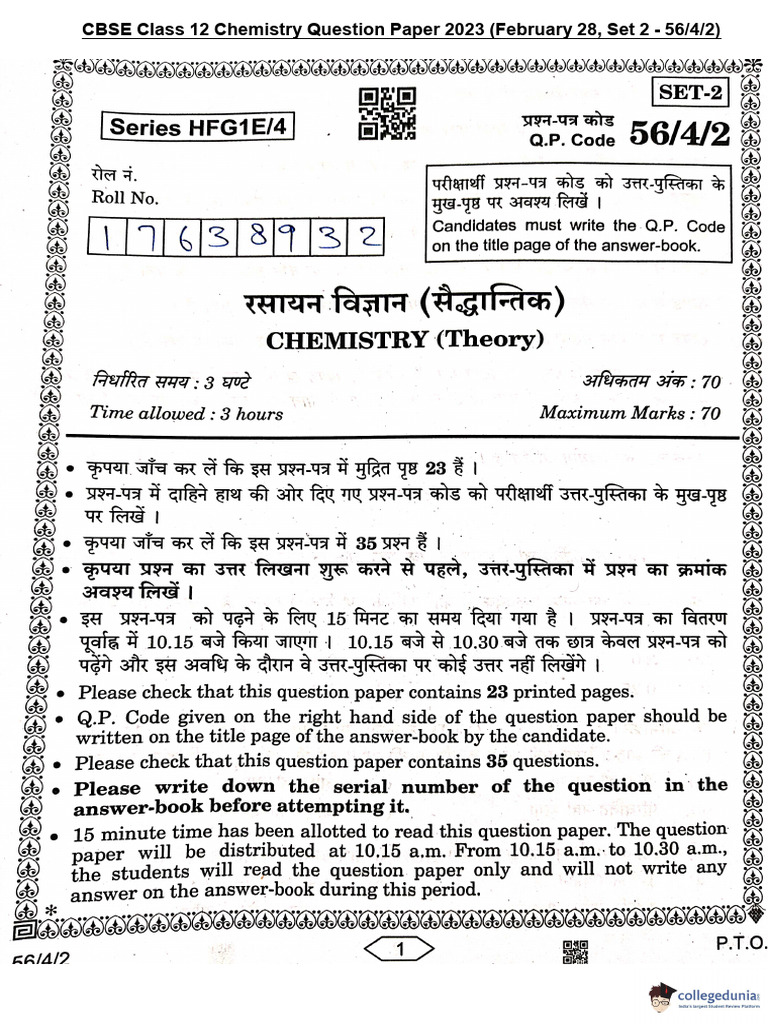 CBSE Class 12 Chemistry Question Paper 2023 (February 28, Set 2 - 56/4/2)
SET-2
Series HFG1E/4
प्रश्न-पत्र कोड
Q.P. Code 56/4/2
रोल नं.
Roll No.
1 7 6 3 8 9 3 2
परीक्षार्थी प्रश्न-पत्र कोड को उत्तर-पुस्तिका के
मुख-पृष्ठ पर अवश्य लिखें ।
Candidates must write the Q.P. Code
on the title page of the answer-book.
रसायन विज्ञान (सैद्धान्तिक)
CHEMISTRY (Theory)
निर्धारित समय : 3 घण्टे
अधिकतम अंक : 70
Time allowed : 3 hours
Maximum Marks : 70
• कृपया जाँच कर लें कि इस प्रश्न-पत्र में मुद्रित पृष्ठ 23 हैं ।
• प्रश्न-पत्र में दाहिने हाथ की ओर दिए गए प्रश्न-पत्र कोड को परीक्षार्थी उत्तर-पुस्तिका के मुख-पृष्ठ
पर लिखें ।
• कृपया जाँच कर लें कि इस प्रश्न-पत्र में 35 प्रश्न हैं ।
• कृपया प्रश्न का उत्तर लिखना शुरू करने से पहले, उत्तर-पुस्तिका में प्रश्न का क्रमांक
अवश्य लिखें ।
• इस प्रश्न-पत्र को पढ़ने के लिए 15 मिनट का समय दिया गया है । प्रश्न-पत्र का वितरण
पूर्वाह्न में 10.15 बजे किया जाएगा । 10.15 बजे से 10.30 बजे तक छात्र केवल प्रश्न-पत्र को
पढ़ेंगे और इस अवधि के दौरान वे उत्तर-पुस्तिका पर कोई उत्तर नहीं लिखेंगे ।
• Please check that this question paper contains 23 printed pages.
• Q.P. Code given on the right hand side of the question paper should be
written on the title page of the answer-book by the candidate.
• Please check that this question paper contains 35 questions.
• Please write down the serial number of the question in the
answer-book before attempting it.
• 15 minute time has been allotted to read this question paper. The question
paper will be distributed at 10.15 a.m. From 10.15 a.m. to 10.30 a.m.,
the students will read the question paper only and will not write any
answer on the answer-book during this period.
*
56/4/2
1
P.T.O.
collegedunia
India's largest Student Review Platform